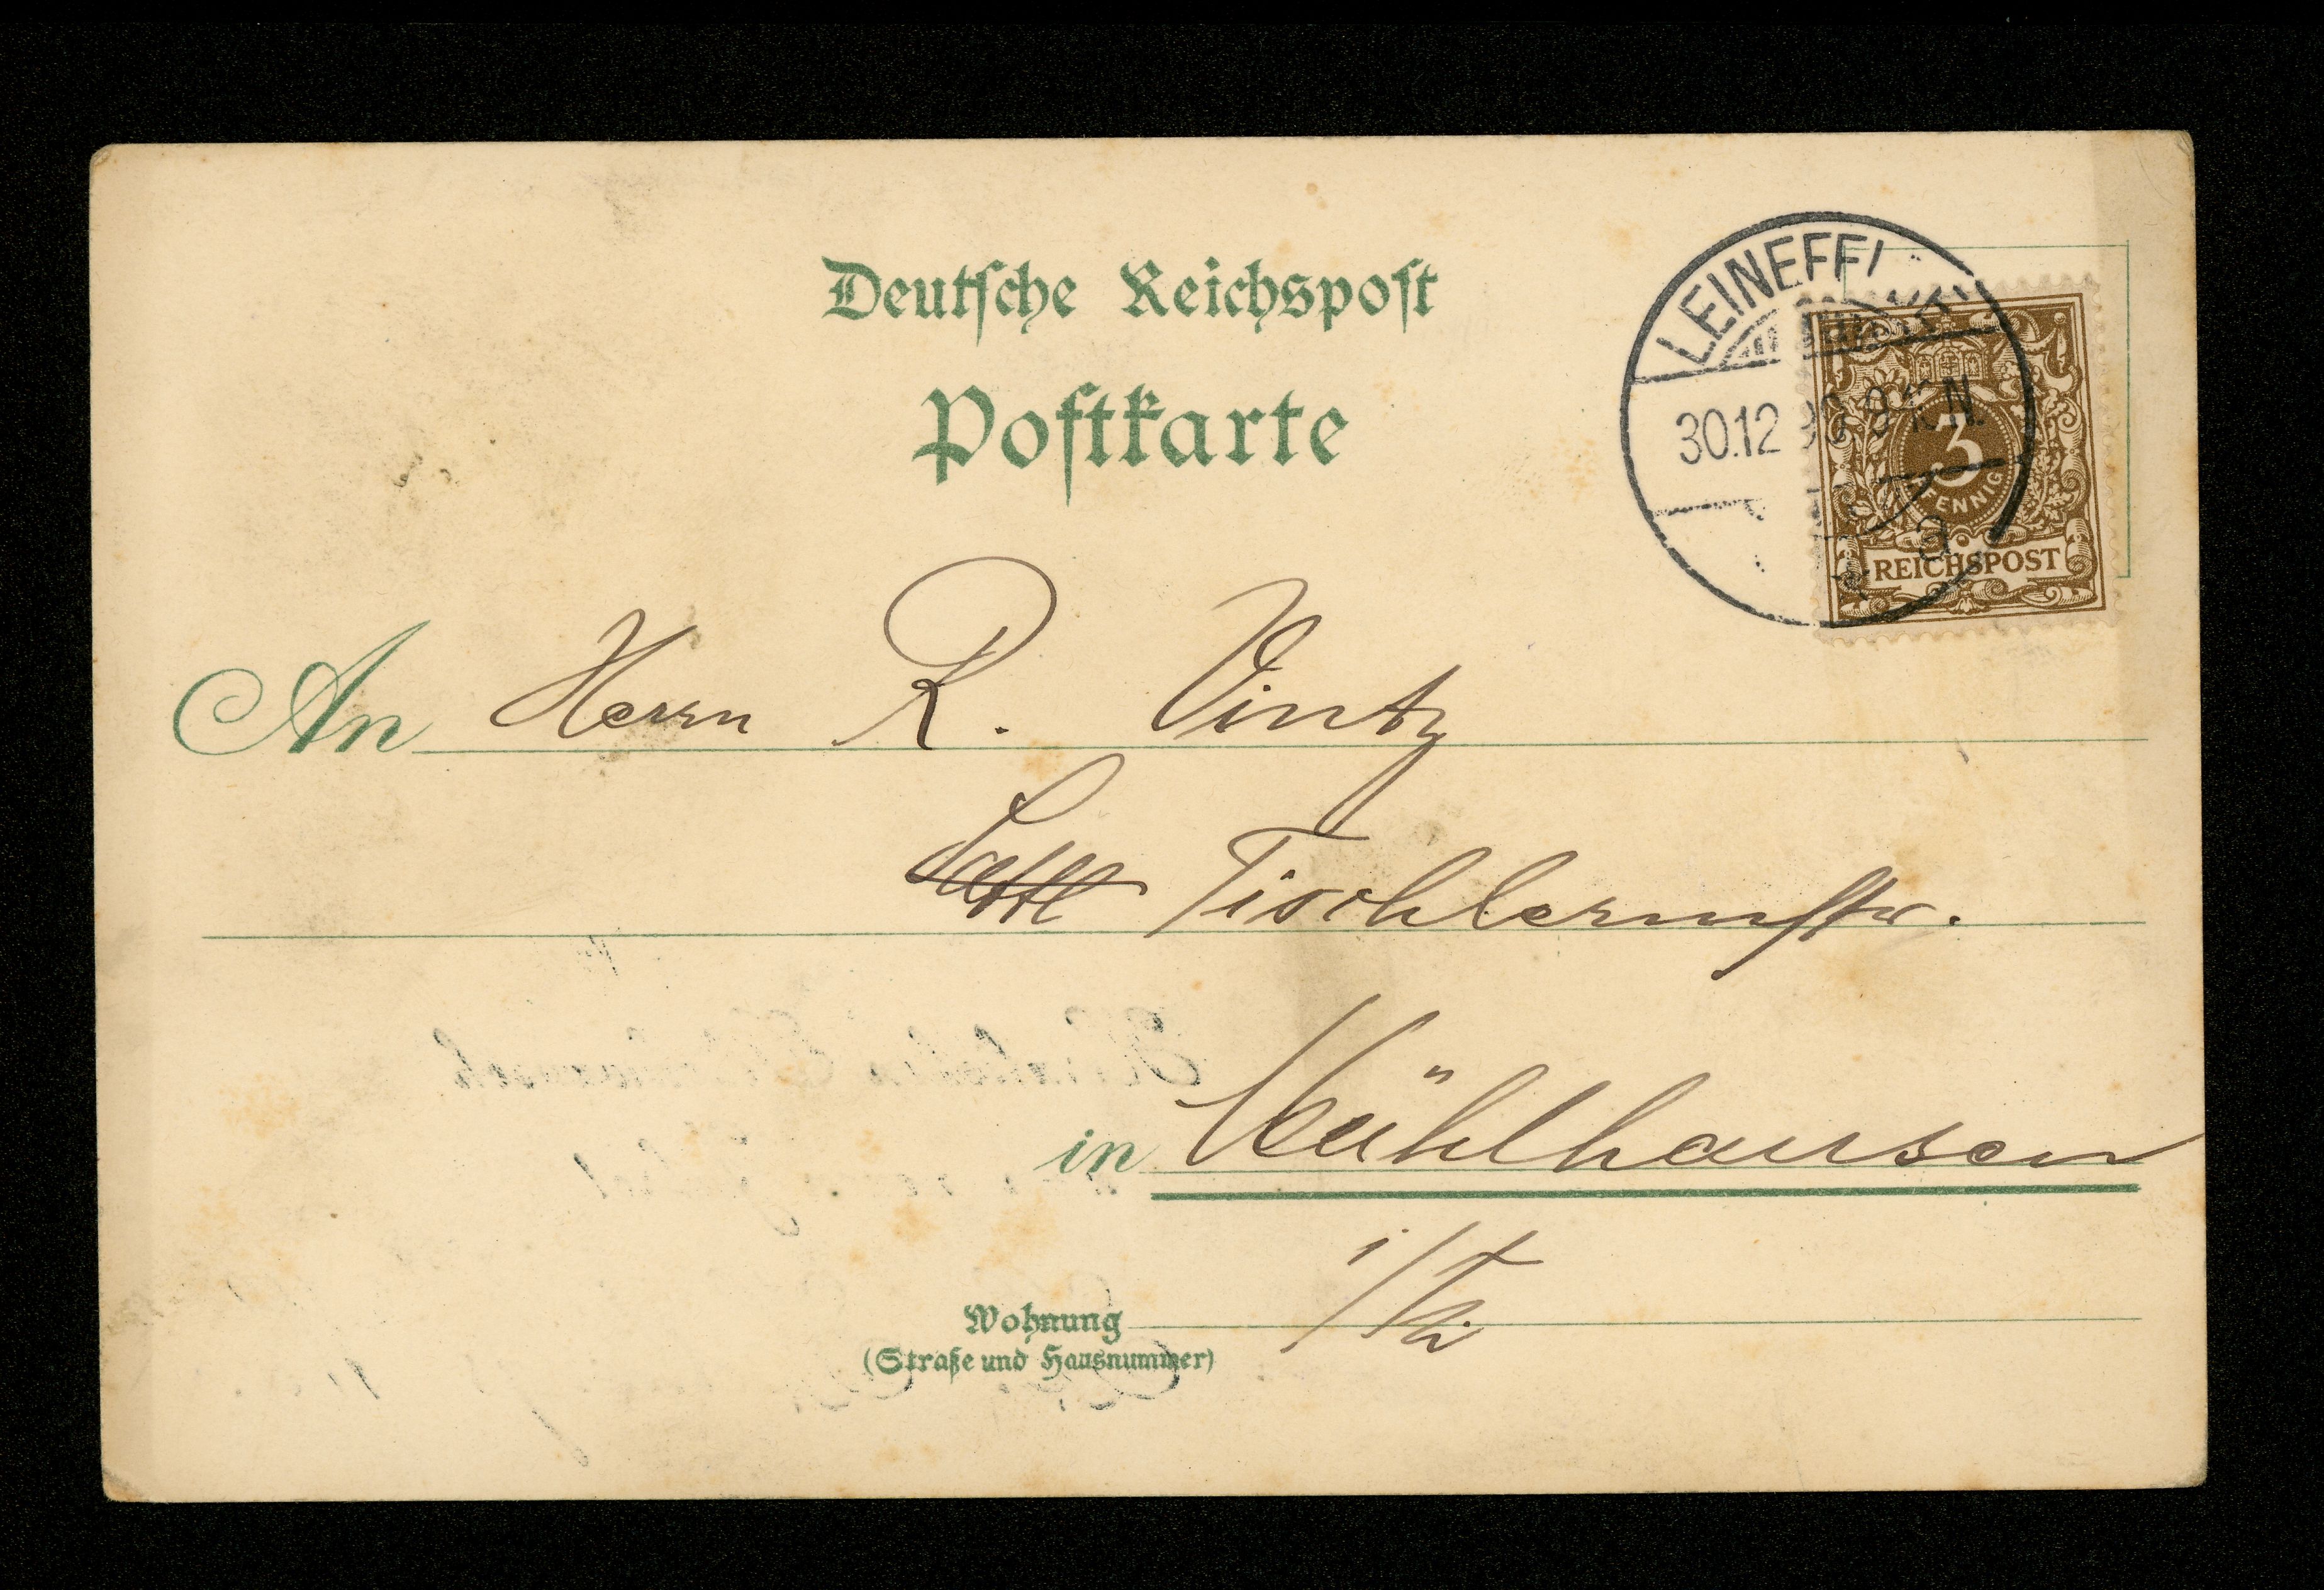 Deutsche Reichspost
Postkarte
LEINEFE
30.12 9-10 N.
a
3
PFENNIG
REICHSPOST
An Herrn R. Vintz
Tischlermstr.
in Mühlhausen
i/Th.
Wohnung
(Straße und Hausnummer)